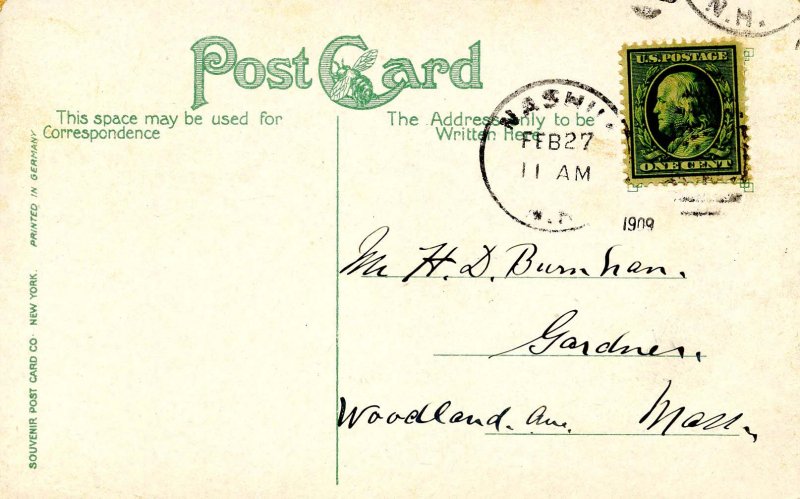 N.H.
Post Card
U.S. POSTAGE
ONE CENT
This space may be used for
Correspondence
The Address only to be
Written Here
NASHU
FEB 27
11 AM
N.H.
1909
Mr H. D. Burnham.
Gardner,
Woodland. Ave. Mass.
SOUVENIR POST CARD CO. NEW YORK. PRINTED IN GERMANY